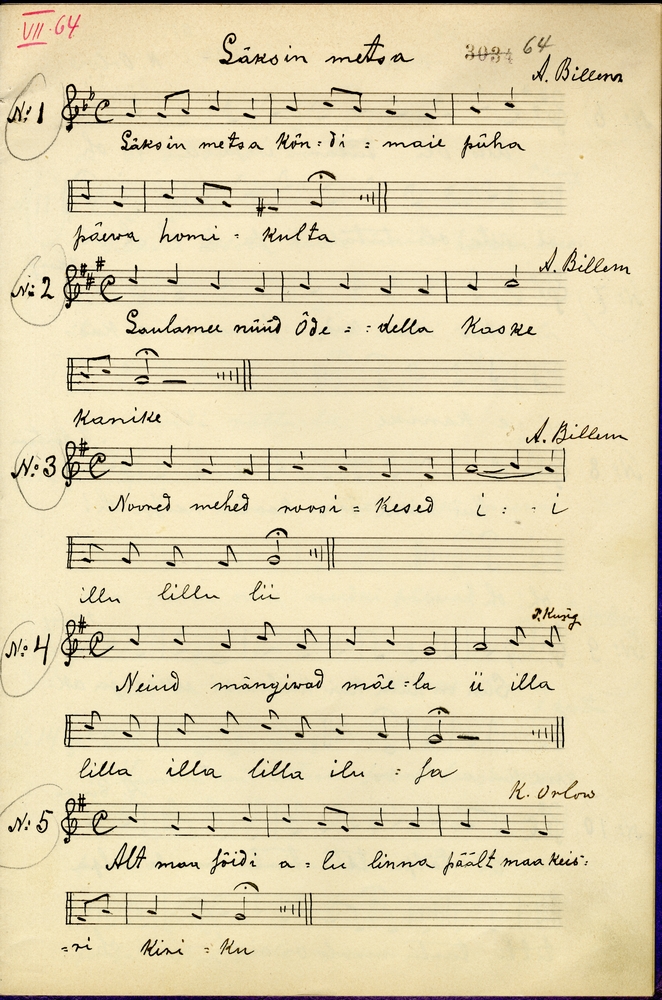 VII 64
Läksin metsa
3034 64
A. Billem
No 1
Läksin metsa Kõn=di = maie püha
päewa homi = kulta
A. Billem
No 2
Laulamee nüüd Õde = : della Kaske
Kanike
A. Billem
No 3
Noored mehed roosi = Kesed i : - i
illu lillu lii
No 4
Neiud mängiwad mäe=la ii illa
lilla illa lilla ilu = ja
K. Orlow
No 5
Alt maa sõidi a = lu linna päält maa keis=
=ri Kiri = Ku